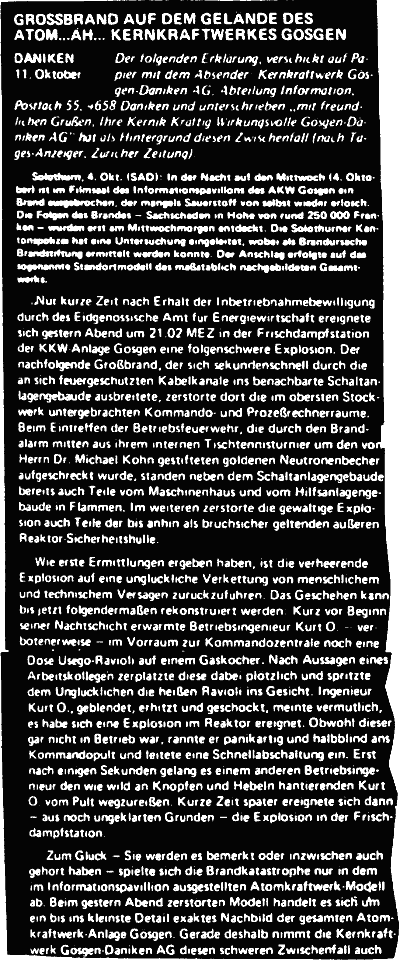 GROSSBRAND AUF DEM GELANDE DES
ATOM...ÄH... KERNKRAFTWERKES GOSGEN
DANIKEN Der folgenden Erklarung, verschickt auf Pa-
11. Oktober pier mit dem Absender Kernkraftwerk Gös-
gen-Daniken AG, Abteilung Information,
Postfach 55, 4658 Daniken und unterschrieben „mit freund-
lichen Grußen, Ihre Kernik Kraftig Wirkungsvolle Gosgen-Da-
niken AG" hat als Hintergrund diesen Zwischenfall (nach Ta-
ges-Anzeiger, Zuricher Zeitung)
Solothurn, 4. Okt. (SAD): In der Nacht auf den Mittwoch (4. Okto-
ber) ist im Filmsaal des Informationspavillons des AKW Gosgen ein
Brand ausgebrochen, der mangels Sauerstoff von selbst wieder erlosch.
Die Folgen des Brandes – Sachschaden in Hohe von rund 250 000 Fran-
ken – wurden erst am Mittwochmorgen entdeckt. Die Solothurner Kan-
tonspolizei hat eine Untersuchung eingeleitet, wobei als Brandursache
Brandstiftung ermittelt werden konnte. Der Anschlag erfolgte auf das
sogenannte Standortmodell des maßstablich nachgebildeten Gesamt-
werks.
„Nur kurze Zeit nach Erhalt der Inbetriebnahmebewilligung
durch des Eidgenossische Amt fur Energiewirtschaft ereignete
sich gestern Abend um 21.02 MEZ in der Frischdampfstation
der KKW-Anlage Gosgen eine folgenschwere Explosion. Der
nachfolgende Großbrand, der sich sekundenschnell durch die
an sich feuergeschutzten Kabelkanale ins benachbarte Schaltan-
lagengebaude ausbreitete, zerstorte dort die im obersten Stock-
werk untergebrachten Kommando- und Prozeßrechnerraume.
Beim Eintreffen der Betriebsfeuerwehr, die durch den Brand-
alarm mitten aus ihrem internen Tischtennisturnier um den von
Herrn Dr. Michael Kohn gestifteten goldenen Neutronenbecher
aufgeschreckt wurde, standen neben dem Schaltanlagengebaude
bereits auch Teile vom Maschinenhaus und vom Hilfsanlagenge-
baude in Flammen. Im weiteren zerstorte die gewaltige Explo-
sion auch Teile der bis anhin als bruchsicher geltenden außeren
Reaktor-Sicherheitshulle.
Wie erste Ermittlungen ergeben haben, ist die verheerende
Explosion auf eine ungluckliche Verkettung von menschlichem
und technischem Versagen zuruckzufuhren. Das Geschehen kann
bis jetzt folgendermaßen rekonstruiert werden: Kurz vor Beginn
seiner Nachtschicht erwarmte Betriebsingenieur Kurt O. – ver-
botenerweise – im Vorraum zur Kommandozentrale noch eine
Dose Usego-Ravioli auf einem Gaskocher. Nach Aussagen eines
Arbeitskollegen zerplatzte diese dabei plotzlich und spritzte
dem Unglucklichen die heißen Ravioli ins Gesicht. Ingenieur
Kurt O., geblendet, erhitzt und geschockt, meinte vermutlich,
es habe sich eine Explosion im Reaktor ereignet. Obwohl dieser
gar nicht in Betrieb war, rannte er panikartig und halbblind ans
Kommandopult und leitete eine Schnellabschaltung ein. Erst
nach einigen Sekunden gelang es einem anderen Betriebsinge-
nieur den wie wild an Knopfen und Hebeln hantierenden Kurt
O. vom Pult wegzureißen. Kurze Zeit spater ereignete sich dann
– aus noch ungeklarten Grunden – die Explosion in der Frisch-
dampfstation.
Zum Gluck – Sie werden es bemerkt oder inzwischen auch
gehort haben – spielte sich die Brandkatastrophe nur in dem
im Informationspavillion ausgestellten Atomkraftwerk-Modell
ab. Beim gestern Abend zerstorten Modell handelt es sich um
ein bis ins kleinste Detail exaktes Nachbild der gesamten Atom-
kraftwerk-Anlage Gosgen. Gerade deshalb nimmt die Kernkraft-
werk Gosgen-Daniken AG diesen schweren Zwischenfall auch